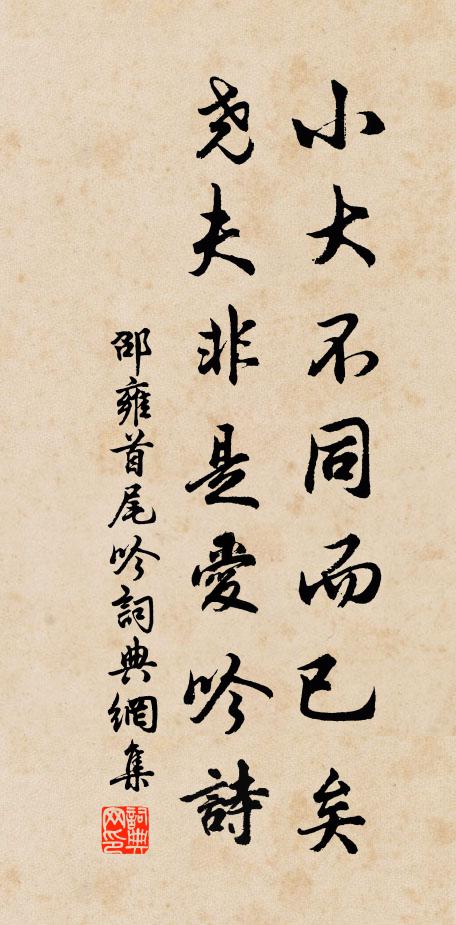 小大不同而已矣
尧夫非是愛吟詩
邵雍首尾吟詞典網集
詞典网印